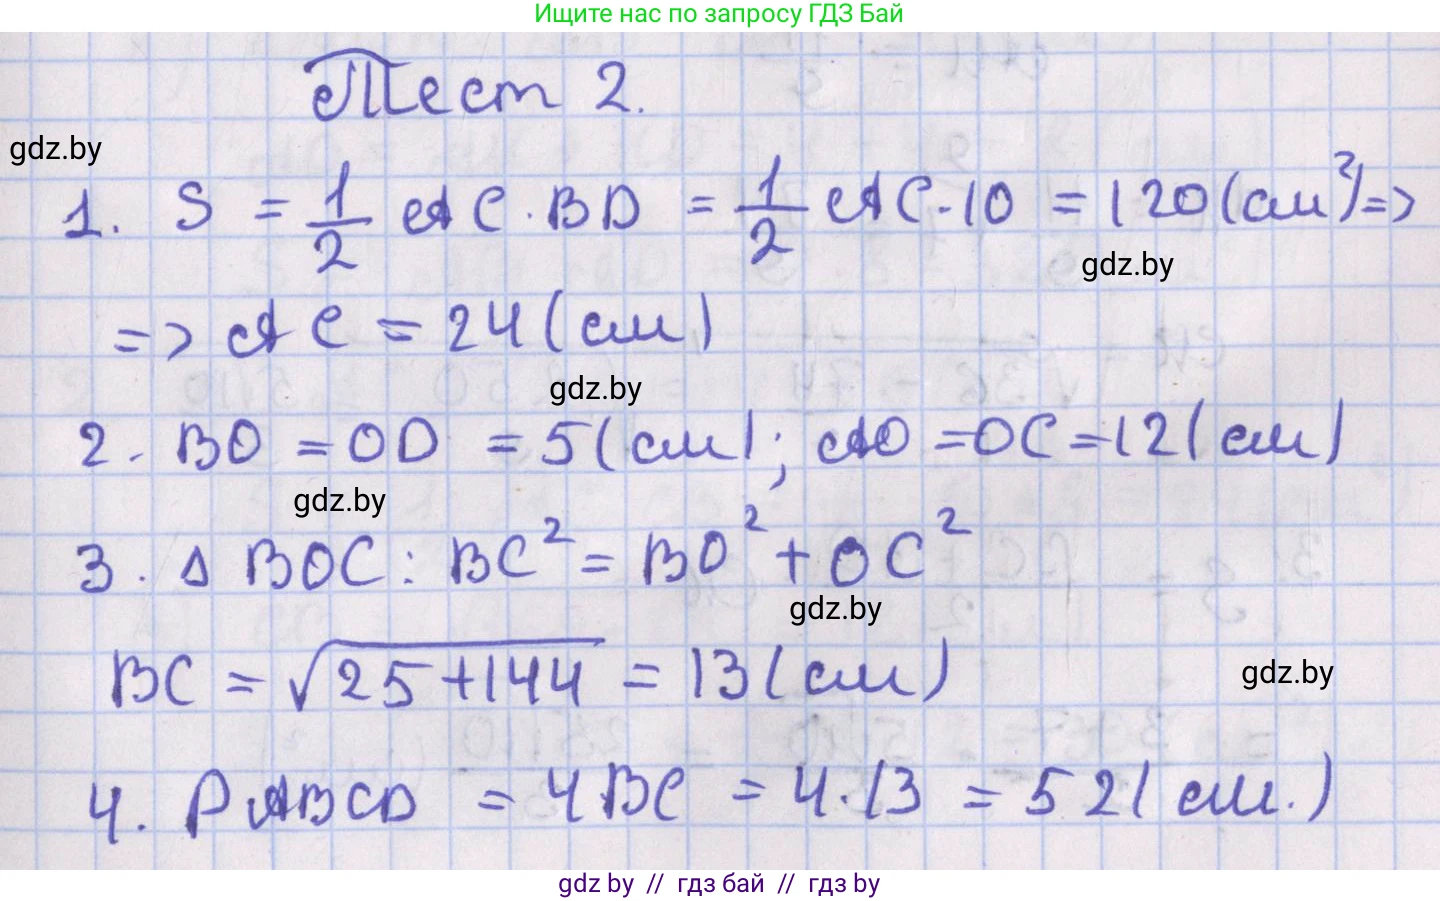 Ищите нас по запросу ГДЗ Бай
Тест 2.
gdz.by
1. S = 1/2 AC · BD = 1/2 AC · 10 = 120 (см²) =>
gdz.by
=> AC = 24 (см)
gdz.by
2. BO = OD = 5 (см); AO = OC = 12 (см)
gdz.by
3. Δ BOC: BC² = BO² + OC²
gdz.by
BC = √25+144 = 13 (см)
gdz.by
4. P ABCD = 4BC = 4·13 = 52 (см.)
gdz.by // гдз бай // гдз by